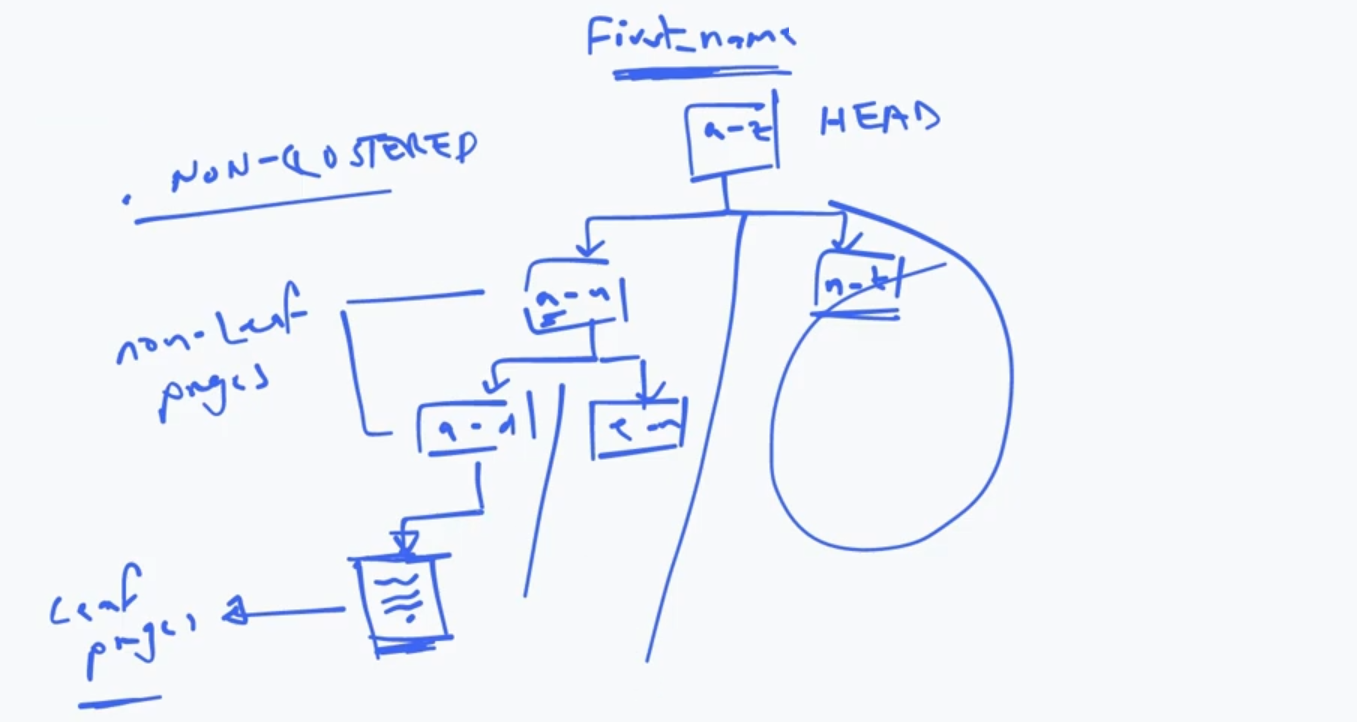 First_name
a-z
HEAD
. NON-CLUSTERED
a-n
n-t
non-leaf
pages
a-d
e-m
leaf
pages